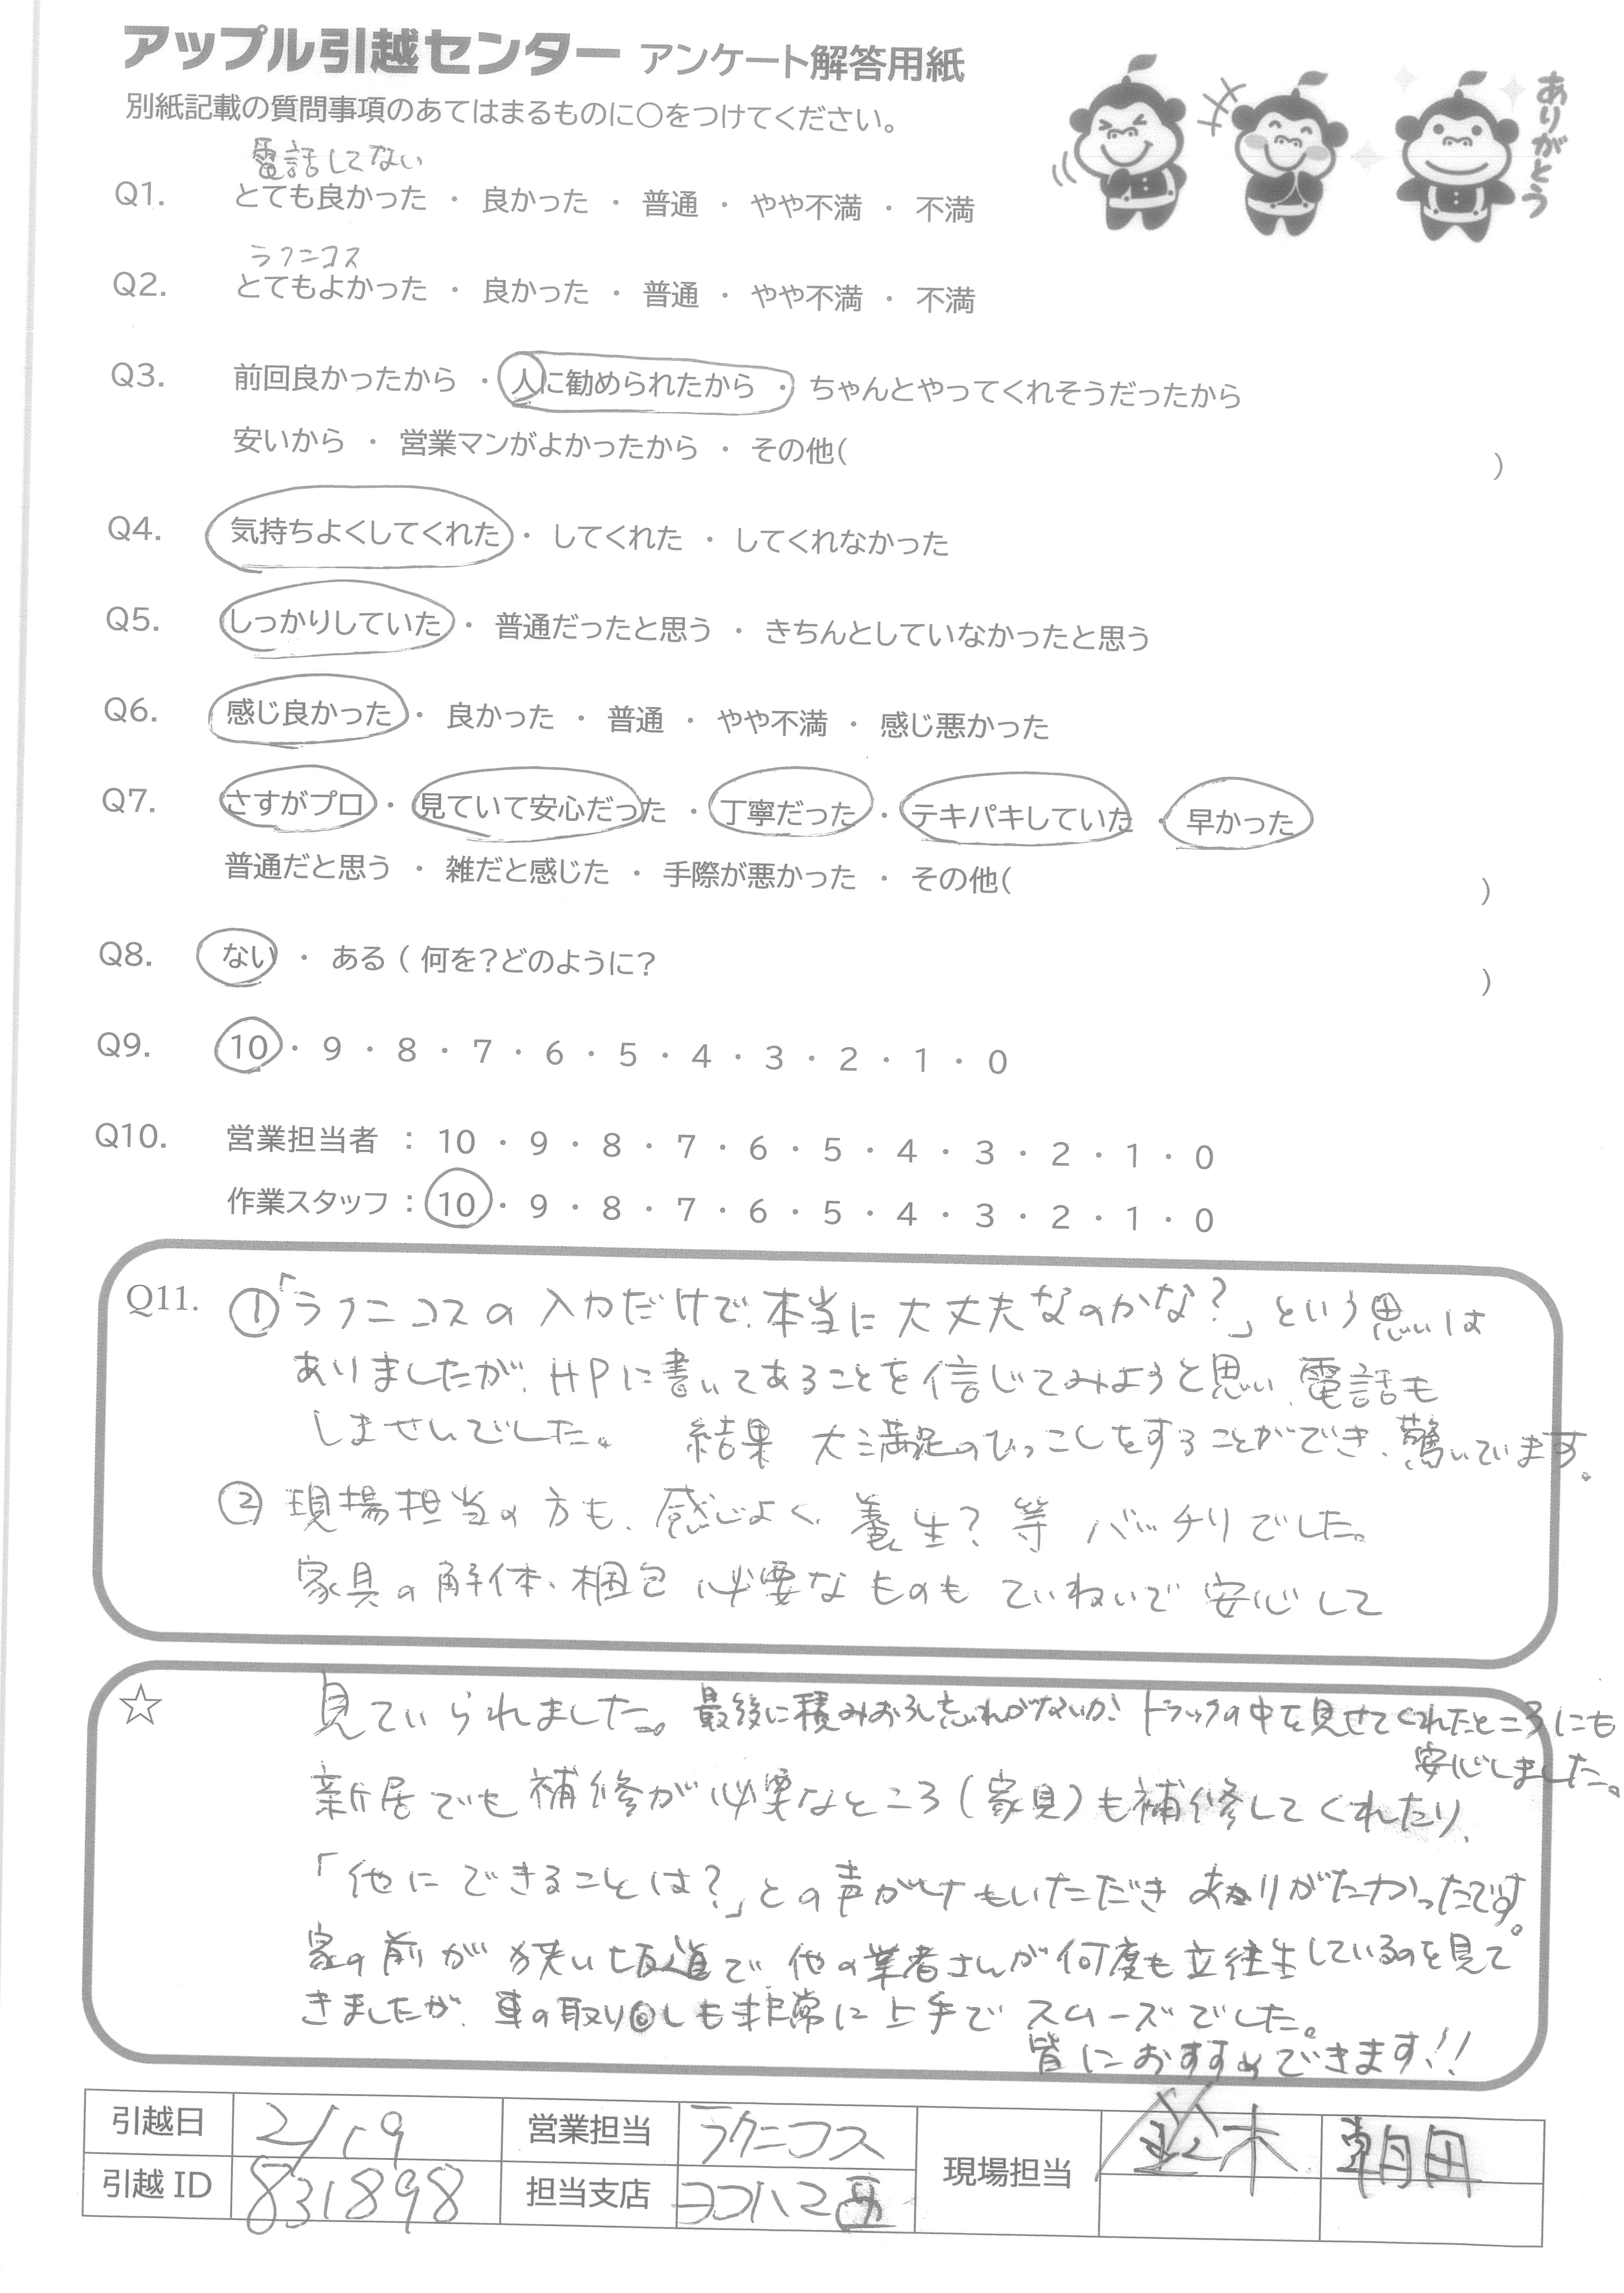 アップル引越センター アンケート解答用紙
ありがとう
別紙記載の質問事項のあてはまるものに○をつけてください。
電話してない
Q1. とても良かった ・ 良かった ・ 普通 ・ やや不満 ・ 不満
ラクニコス
Q2. とてもよかった ・ 良かった ・ 普通 ・ やや不満 ・ 不満
Q3. 前回良かったから ・ 人に勧められたから ・ ちゃんとやってくれそうだったから
安いから ・ 営業マンがよかったから ・ その他( )
Q4. 気持ちよくしてくれた ・ してくれた ・ してくれなかった
Q5. しっかりしていた ・ 普通だったと思う ・ きちんとしていなかったと思う
Q6. 感じ良かった ・ 良かった ・ 普通 ・ やや不満 ・ 感じ悪かった
Q7. さすがプロ ・ 見ていて安心だった ・ 丁寧だった ・ テキパキしていた ・ 早かった
普通だと思う ・ 雑だと感じた ・ 手際が悪かった ・ その他( )
Q8. ない ・ ある ( 何を?どのように? )
Q9. 10 ・ 9 ・ 8 ・ 7 ・ 6 ・ 5 ・ 4 ・ 3 ・ 2 ・ 1 ・ 0
Q10. 営業担当者 : 10 ・ 9 ・ 8 ・ 7 ・ 6 ・ 5 ・ 4 ・ 3 ・ 2 ・ 1 ・ 0
作業スタッフ : 10 ・ 9 ・ 8 ・ 7 ・ 6 ・ 5 ・ 4 ・ 3 ・ 2 ・ 1 ・ 0
Q11. ①「ラクニコスの入力だけで、本当に大丈夫なのかな?」という思いは
ありましたが、HPに書いてあることを信じてみようと思い、電話も
しませんでした。 結果 大満足のひっこしをすることができ、驚いています。
② 現場担当の方も、感じよく、養生?等 バッチリでした。
家具の解体、梱包 必要なものも ていねいで 安心して
☆ 見ていられました。最後に積みおろし忘れがないか、トラックの中を見せてくれたところにも
安心しました。
新居でも補修が必要なところ(家具)も補修してくれたり、
「他にできることは?」との声がけもいただき ありがたかったです。
家の前が狭い坂道で、他の業者さんが何度も立往生しているのを見て
きましたが、車の取り回しも非常に上手で スムーズでした。
皆におすすめできます!!
引越日 2/19 営業担当 ラクニコス 現場担当 鈴木 朝田
引越ID 831898 担当支店 ヨコハマ西